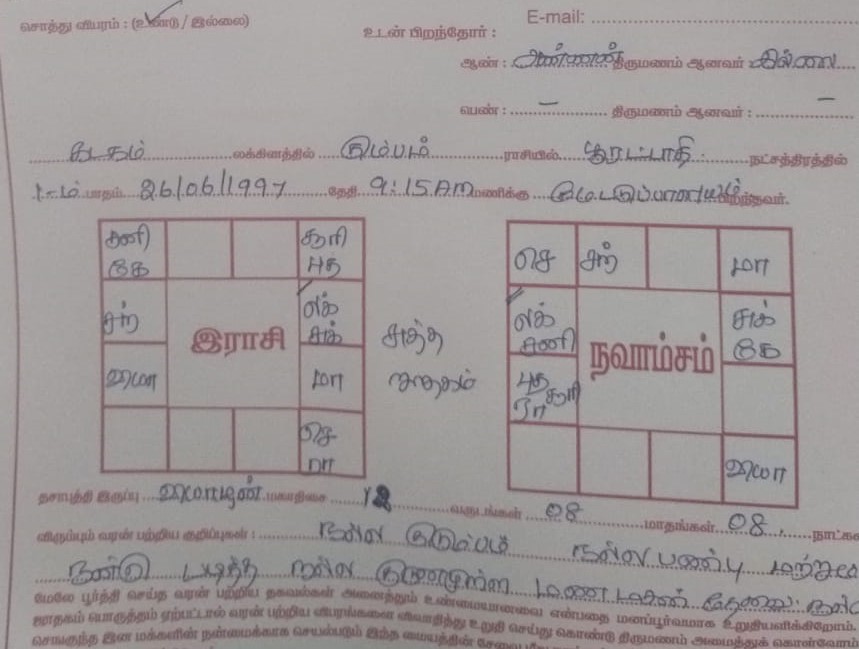 சொத்து விபரம் : (உண்டு / இல்லை)
E-mail:
உடன் பிறந்தோர் :
ஆண் : அண்ணன் திருமணம் ஆனவர் இல்லை
பெண் : – திருமணம் ஆனவர் : –
கடகம் லக்கினத்தில் கும்பம் ராசியில் பூரட்டாதி நட்சத்திரத்தில்
1-ம் பாதம் 26/06/1997 தேதி 9:15 AM மணிக்கு மேட்டுப்பாளையம் பிறந்தவர்.
சனி சூரி செ சந் மா
கே புத
சந் லக் லக் சுக்
சுக் சனி கே
இராசி சுத்த நவாம்சம்
மா ஜாதகம் புத சூரி
ரா
செ
ரா
தசாபுத்தி இருப்பு மகாதிசை 12 வருடங்கள் 08 மாதங்கள் 08
விரும்பும் வரன் பற்றிய குறிப்புகள் : நல்ல குடும்பம் நல்ல பண்பு மற்றும்
நன்கு படித்த நல்ல குணமுள்ள மணமகன் தேவை.
மேலே பூர்த்தி செய்த வரன் பற்றிய தகவல்கள் அனைத்தும் உண்மையானவை என்பதை மனப்பூர்வமாக உறுதியளிக்கிறோம்.
ஜாதகம் பொருத்தம் ஏற்பட்டால் வரன் பற்றிய விபரங்களை விவாதித்து உறுதி செய்து கொண்டு திருமணம் அமைத்துக் கொள்வோம்
இன மக்களின் நன்மைக்காக செயல்படும் இந்த மையத்தின்